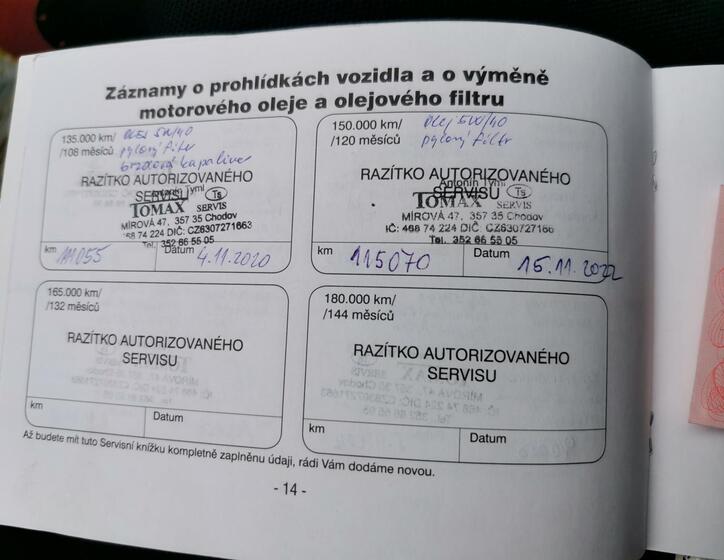 Záznamy o prohlídkách vozidla a o výměně
motorového oleje a olejového filtru
135.000 km/
/108 měsíců
olej 5W/40
pylový filtr
brzdová kapalina
RAZÍTKO AUTORIZOVANÉHO
SERVISU
Antonín Tyml
TOMAX SERVIS Ts
MÍROVÁ 47, 357 35 Chodov
468 74 224 DIČ: CZ6307271663
Tel. 352 66 55 05
km 111055
Datum 4.11.2020
150.000 km/
/120 měsíců
olej 5W/40
pylový filtr
RAZÍTKO AUTORIZOVANÉHO
SERVISU
Antonín Tyml
TOMAX SERVIS Ts
MÍROVÁ 47, 357 35 Chodov
IČ: 468 74 224 DIČ: CZ6307271663
Tel. 352 66 55 05
km 115070
Datum 15.11.2022
165.000 km/
/132 měsíců
RAZÍTKO AUTORIZOVANÉHO
SERVISU
km
Datum
180.000 km/
/144 měsíců
RAZÍTKO AUTORIZOVANÉHO
SERVISU
km
Datum
Až budete mít tuto Servisní knížku kompletně zaplněnu údaji, rádi Vám dodáme novou.
- 14 -